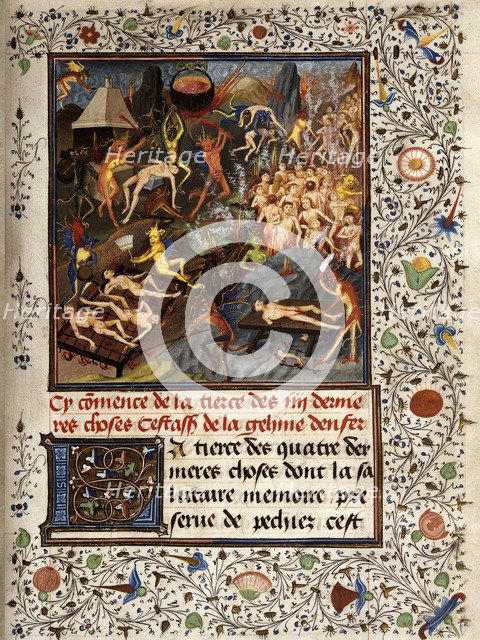 Heritage Heritage
Heritage Heritage
Heritage Heritage
C
Cy cōmence de la tierce des iiij dernie
res choses Cestass̄ de la gehine denfer
La tierce des quatre der
nieres choses dont la sa
lutaire memoire pre
serue de pechiez cest